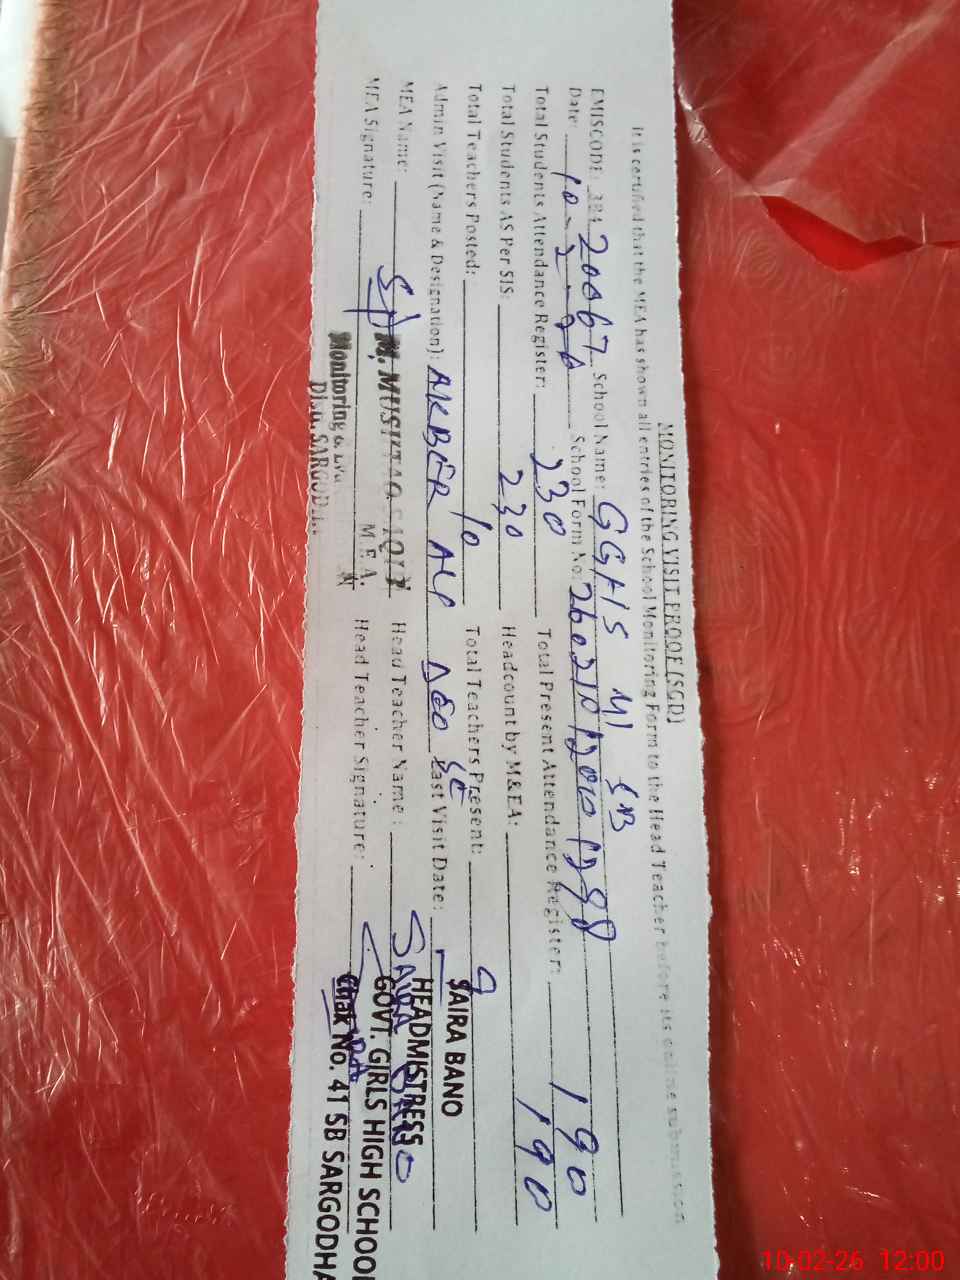 MONITORING VISIT PROOF (SGD)
It is certified that the MEA has shown all entries of the School Monitoring Form to the Head Teacher before its online submission
EMISCODE: 384 20067 School Name: GGHS 41 SB
Date: 10-2-26 School Form No:
Total Students Attendance Register: 230 Total Present Attendance Register: 190
Total Students AS Per SIS: 230 Headcount by M&EA: 190
Total Teachers Posted: 10 Total Teachers Present: 9
Admin Visit (Name & Designation): AKBER ALI DEO SE Last Visit Date:
MEA Name: M. MUSHTAQ SAQIB Head Teacher Name: SAIRA BANO
MEA Signature: M.E.A. Head Teacher Signature:
Monitoring &
SARGODHA
SAIRA BANO
HEADMISTRESS
GOVT. GIRLS HIGH SCHOOL
Chak No. 41 SB SARGODHA
10-02-26 12:00